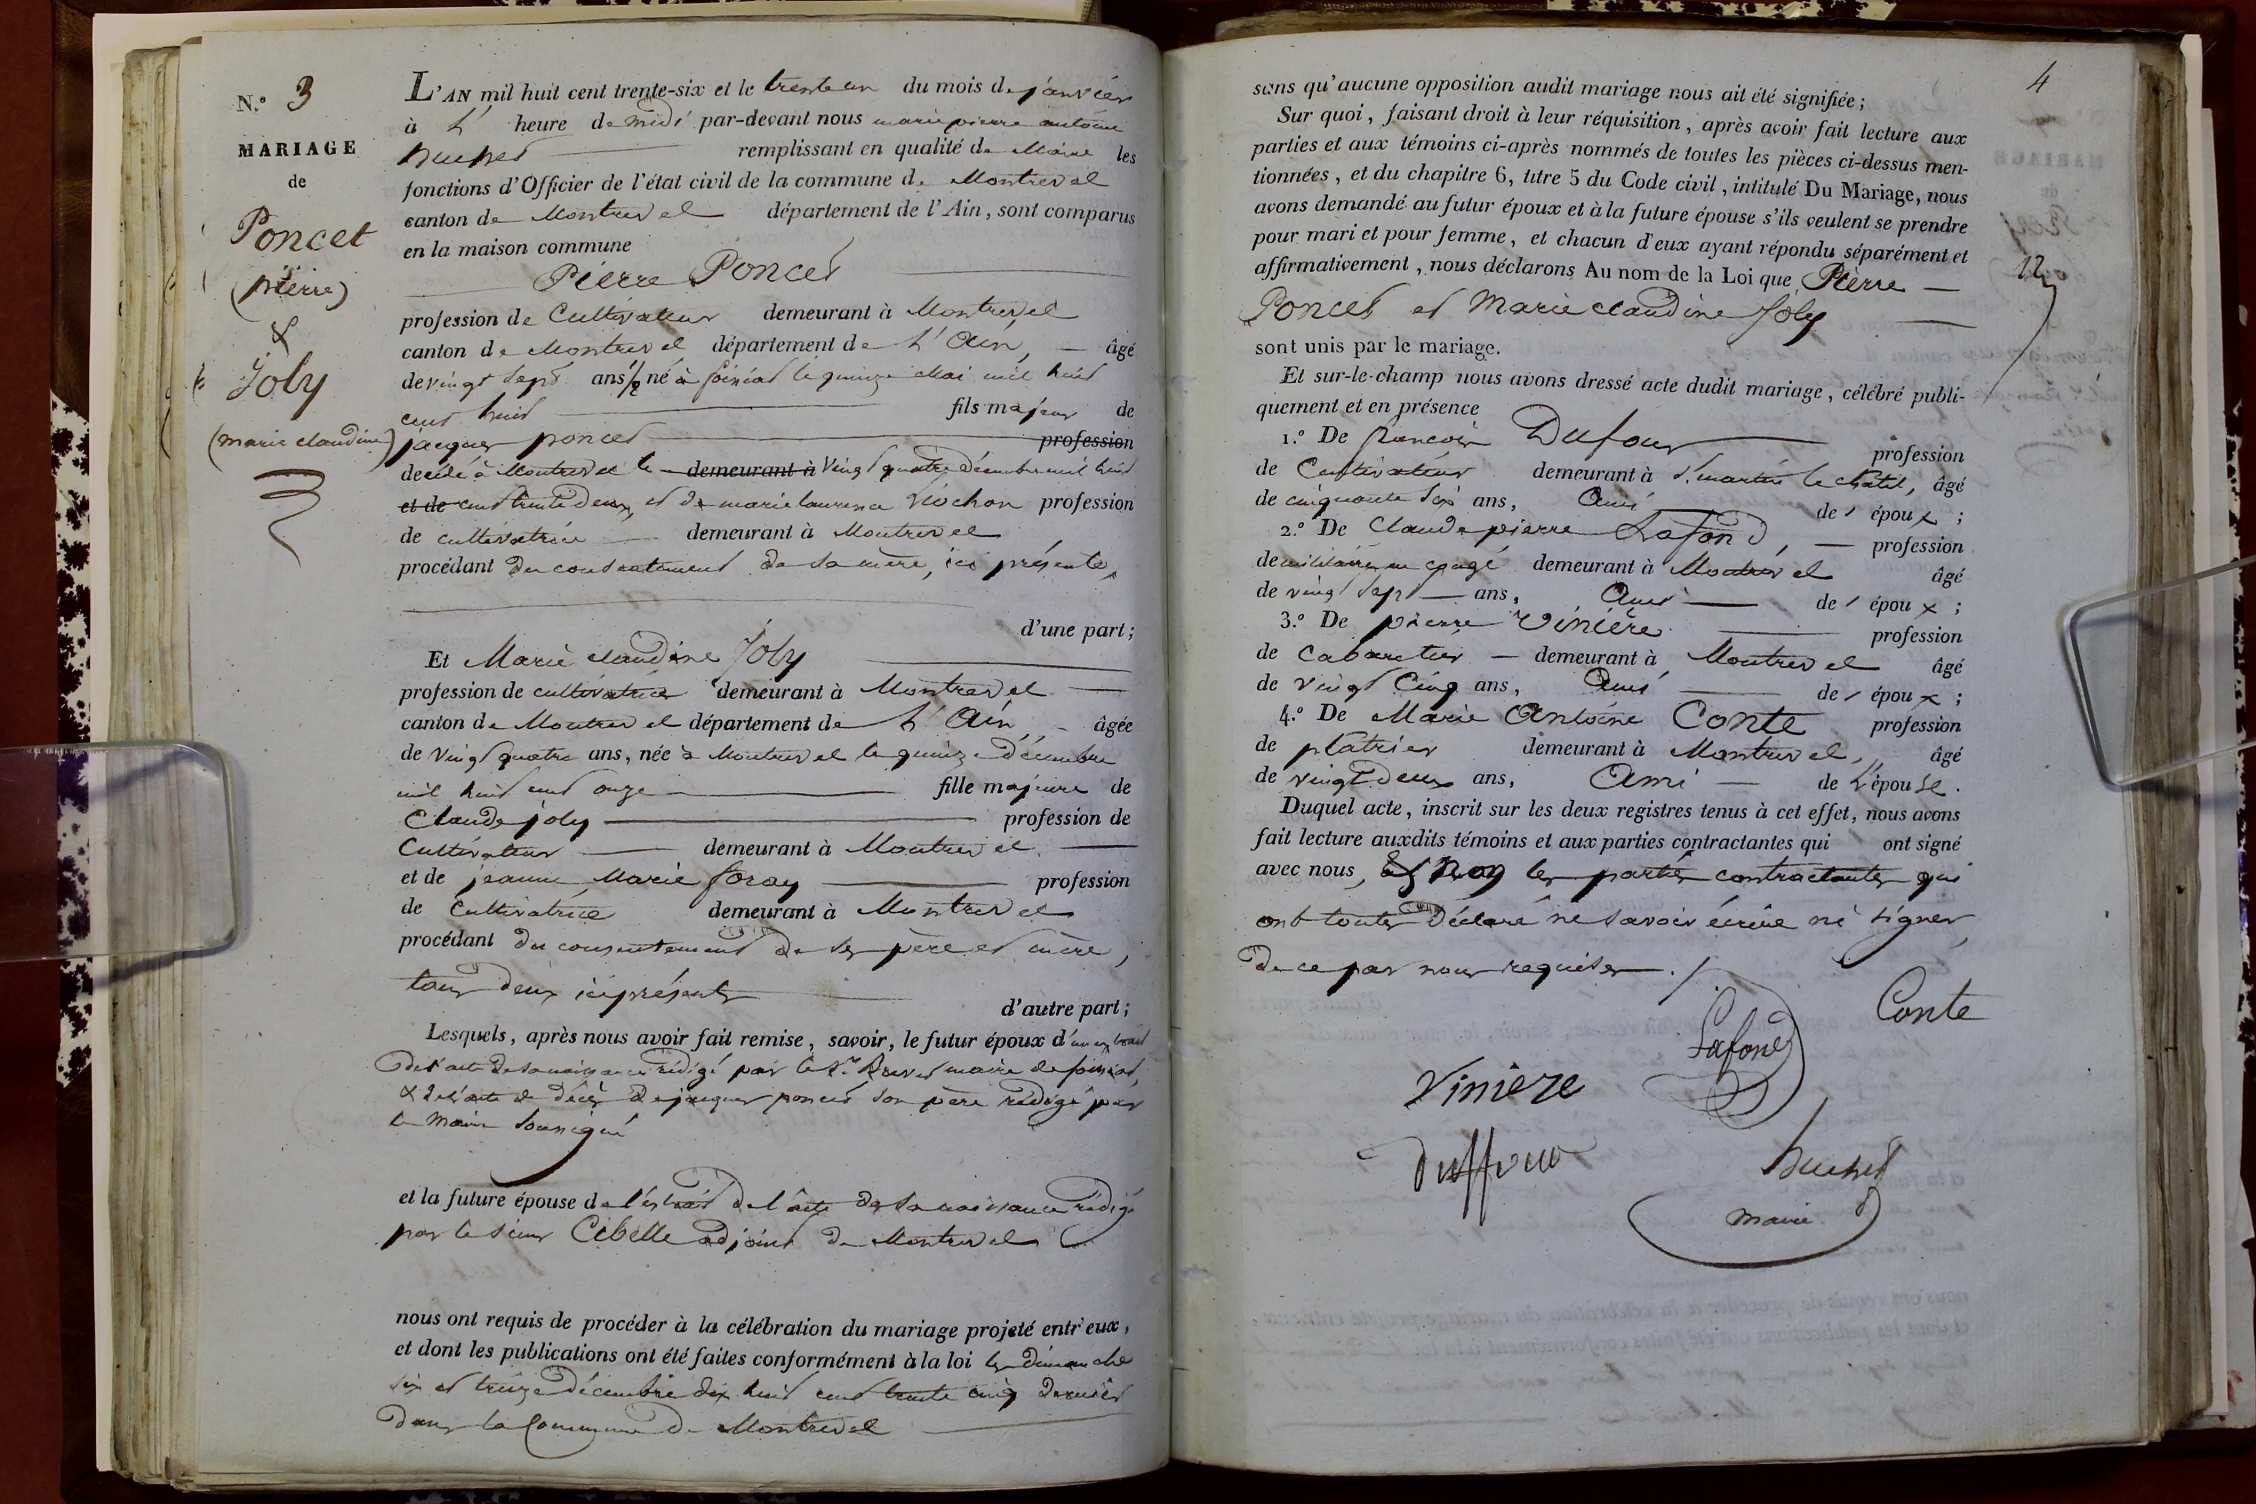 N.º 3
MARIAGE
de
Poncet
(pierre)
&
Joly
(marie claudine)
L'AN mil huit cent trente-six et le trente un du mois de janvier
à l' heure de midi par-devant nous marie pierre antoine
huchet remplissant en qualité de Maire les
fonctions d'Officier de l'état civil de la commune de Montrevel
canton de Montrevel département de l'Ain, sont comparus
en la maison commune
Pierre Poncet
profession de Cultivateur demeurant à Montrevel
canton de Montrevel département de L'Ain, âgé
de vingt sept ans 1/2 né à foissiat le quinze Mai mil huit
cent huit fils majeur de
jacques poncet profession
décédé à Montrevel le demeurant à vingt quatre décembre mil huit
et de cent trente deux, et de marie laurence Viochon profession
de cultivatrice demeurant à Montrevel
procédant du consentement de sa mère, ici présente,
d'une part;
Et Marie claudine Joly
profession de cultivatrice demeurant à Montrevel
canton de Montrevel département de L'Ain, âgée
de vingt quatre ans, née à Montrevel le quinze Décembre
mil huit cent onze fille majeure de
Claude joly profession de
Cultivateur demeurant à Montrevel
et de jeanne Marie foray profession
de Cultivatrice demeurant à Montrevel
procédant du consentement de ses père et mère,
tous deux ici présents
d'autre part;
Lesquels, après nous avoir fait remise, savoir, le futur époux d'un extrait
de l'acte de sa naissance rédigé par le Sr. maire de foissiat,
& de l'acte de décès de jacques poncet son père rédigé par
le Maire soussigné
et la future épouse de l'extrait de l'acte de sa naissance rédigé
par le sieur Cibelle adjoint de Montrevel
nous ont requis de procéder à la célébration du mariage projeté entr'eux,
et dont les publications ont été faites conformément à la loi les dimanche
six et treize décembre dix huit cent trente cinq dernier
dans la Commune de Montrevel
4
sans qu'aucune opposition audit mariage nous ait été signifiée;
Sur quoi, faisant droit à leur réquisition, après avoir fait lecture aux
parties et aux témoins ci-après nommés de toutes les pièces ci-dessus men-
tionnées, et du chapitre 6, titre 5 du Code civil, intitulé Du Mariage, nous
avons demandé au futur époux et à la future épouse s'ils veulent se prendre
pour mari et pour femme, et chacun d'eux ayant répondu séparément et
affirmativement, nous déclarons Au nom de la Loi que Pierre
12
Poncet et Marie claudine Joly
sont unis par le mariage.
Et sur-le-champ nous avons dressé acte dudit mariage, célébré publi-
quement et en présence
1.º De françois Dufour profession
de Cultivateur demeurant à St. martin le chatel, âgé
de cinquante six ans, Ami de l'époux;
2.º De Claude pierre Lafond, profession
de militaire en congé demeurant à Montrevel âgé
de vingt sept ans, Ami de l'époux;
3.º De pierre Vinière profession
de Cabaretier demeurant à Montrevel âgé
de vingt Cinq ans, Ami de l'époux;
4.º De Marie Antoine Conte profession
de platrier demeurant à Montrevel, âgé
de vingt deux ans, Ami de L'épouse.
Duquel acte, inscrit sur les deux registres tenus à cet effet, nous avons
fait lecture auxdits témoins et aux parties contractantes qui ont signé
avec nous, & non les parties contractantes qui
ont toutes déclaré ne savoir écrire ni signer,
de ce par nous requises ./
Conte
Lafond
Viniere
Duffour
huchet
maire